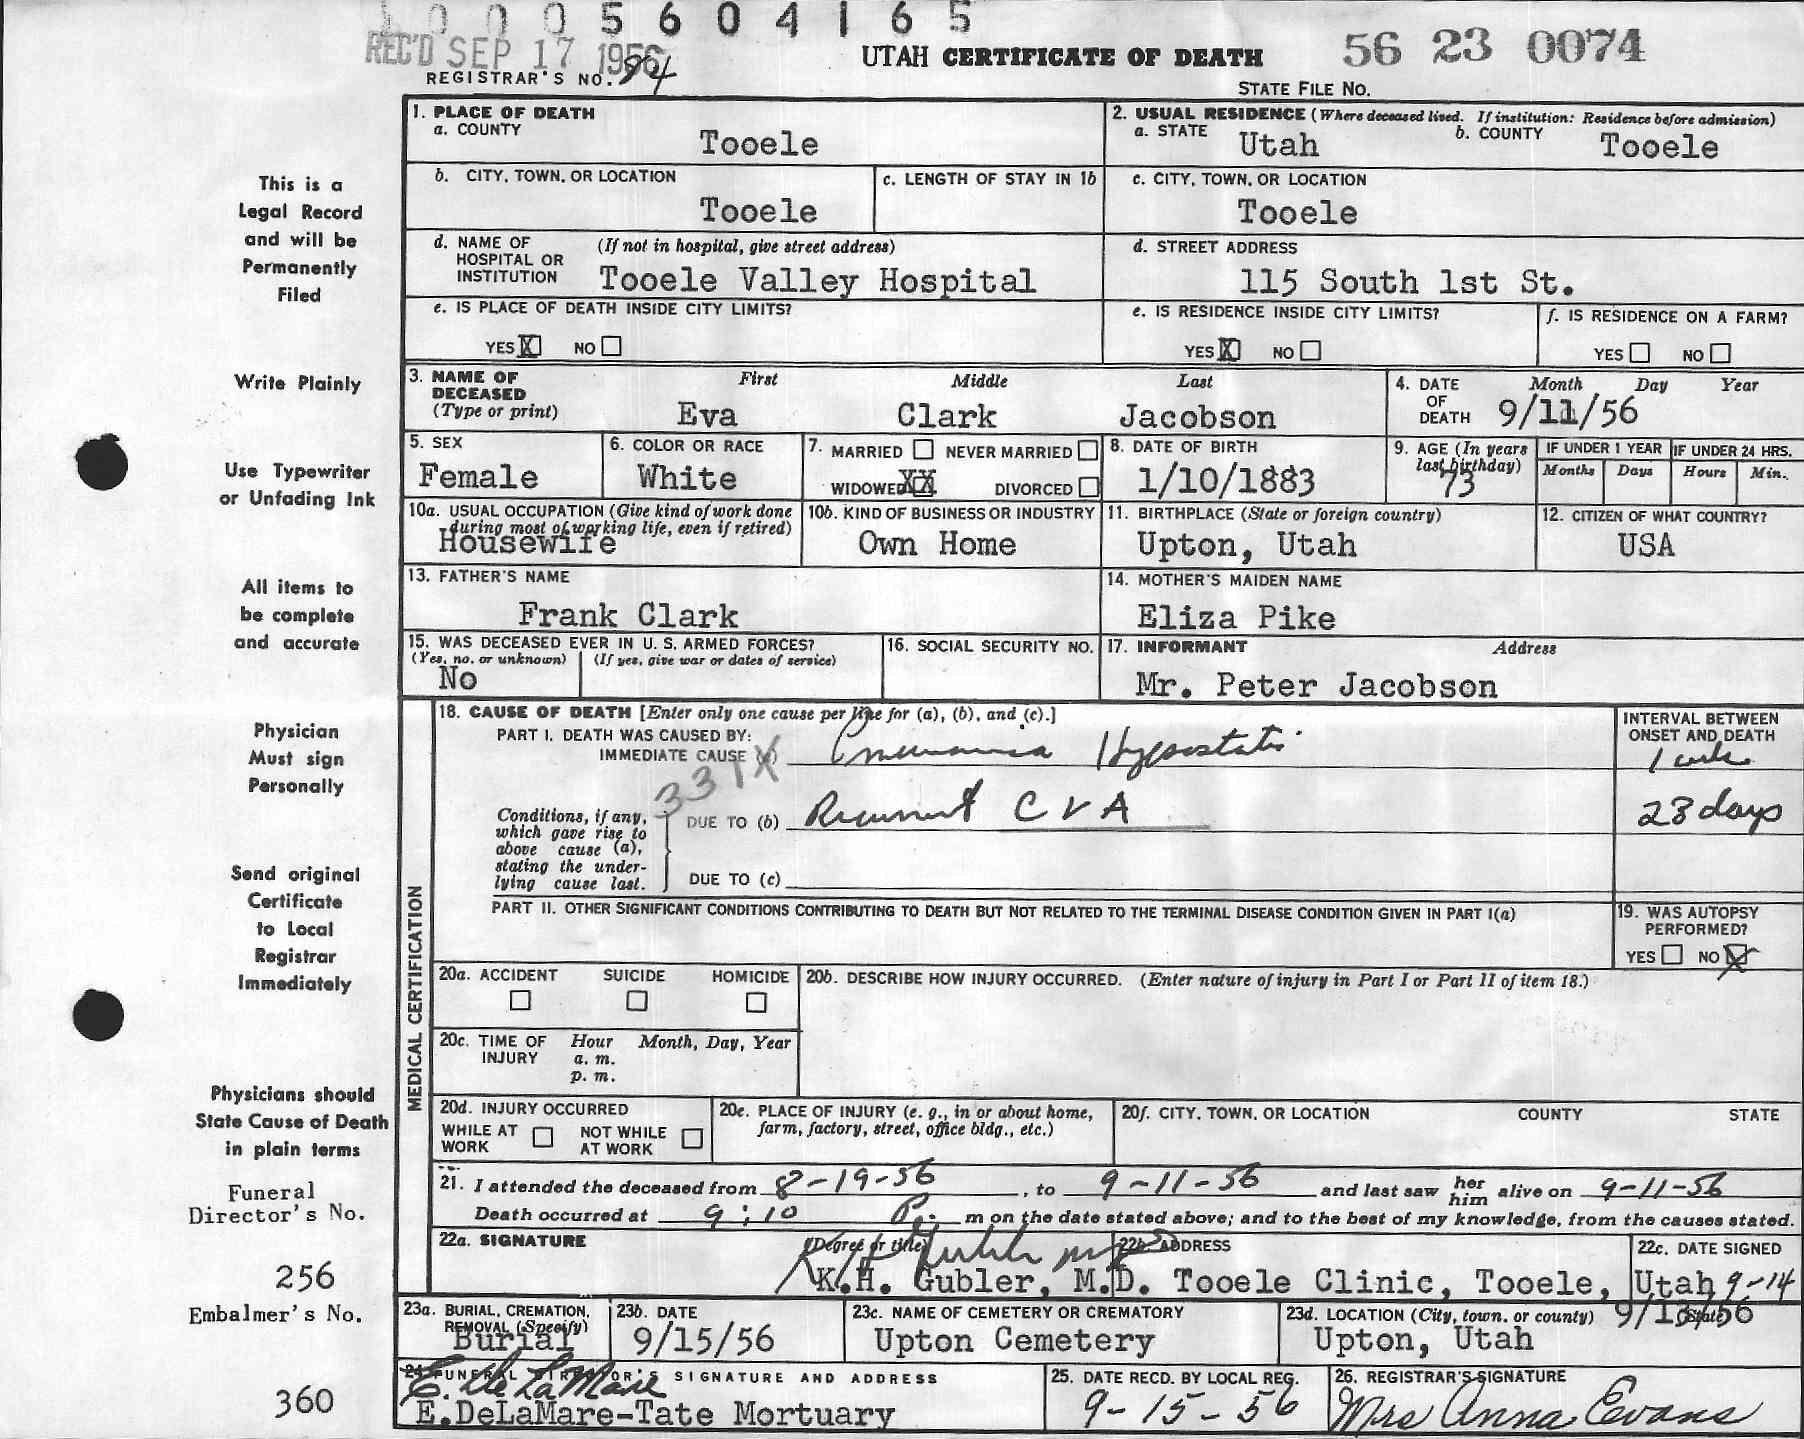 1 0 0 0 5 6 0 4 1 6 5
REC'D SEP 17 1956
REGISTRAR'S NO. 84
UTAH CERTIFICATE OF DEATH
56 23 0074
STATE FILE NO.
This is a
Legal Record
and will be
Permanently
Filed
Write Plainly
Use Typewriter
or Unfading Ink
All items to
be complete
and accurate
Physician
Must sign
Personally
Send original
Certificate
to Local
Registrar
Immediately
Physicians should
State Cause of Death
in plain terms
Funeral
Director's No.
256
Embalmer's No.
360
1. PLACE OF DEATH
a. COUNTY
Tooele
2. USUAL RESIDENCE (Where deceased lived. If institution: Residence before admission)
a. STATE Utah b. COUNTY Tooele
b. CITY, TOWN, OR LOCATION
Tooele
c. LENGTH OF STAY IN 1b
c. CITY, TOWN, OR LOCATION
Tooele
d. NAME OF HOSPITAL OR INSTITUTION (If not in hospital, give street address)
Tooele Valley Hospital
d. STREET ADDRESS
115 South 1st St.
e. IS PLACE OF DEATH INSIDE CITY LIMITS?
YES X NO
e. IS RESIDENCE INSIDE CITY LIMITS?
YES X NO
f. IS RESIDENCE ON A FARM?
YES NO
3. NAME OF DECEASED (Type or print)
First Middle Last
Eva Clark Jacobson
4. DATE OF DEATH Month Day Year
9/11/56
5. SEX
Female
6. COLOR OR RACE
White
7. MARRIED NEVER MARRIED
WIDOWED XX DIVORCED
8. DATE OF BIRTH
1/10/1883
9. AGE (In years last birthday)
73
IF UNDER 1 YEAR
Months Days
IF UNDER 24 HRS.
Hours Min.
10a. USUAL OCCUPATION (Give kind of work done during most of working life, even if retired)
Housewife
10b. KIND OF BUSINESS OR INDUSTRY
Own Home
11. BIRTHPLACE (State or foreign country)
Upton, Utah
12. CITIZEN OF WHAT COUNTRY?
USA
13. FATHER'S NAME
Frank Clark
14. MOTHER'S MAIDEN NAME
Eliza Pike
15. WAS DECEASED EVER IN U. S. ARMED FORCES?
(Yes, no, or unknown) (If yes, give war or dates of service)
No
16. SOCIAL SECURITY NO.
17. INFORMANT Address
Mr. Peter Jacobson
MEDICAL CERTIFICATION
18. CAUSE OF DEATH [Enter only one cause per line for (a), (b), and (c).]
PART I. DEATH WAS CAUSED BY:
IMMEDIATE CAUSE (a) Pneumonia Hypostatic
INTERVAL BETWEEN ONSET AND DEATH
1 wk
331X
Conditions, if any, which gave rise to above cause (a), stating the underlying cause last.
DUE TO (b) Recurrent C V A
23 days
DUE TO (c)
PART II. OTHER SIGNIFICANT CONDITIONS CONTRIBUTING TO DEATH BUT NOT RELATED TO THE TERMINAL DISEASE CONDITION GIVEN IN PART I(a)
19. WAS AUTOPSY PERFORMED?
YES NO X
20a. ACCIDENT SUICIDE HOMICIDE
20b. DESCRIBE HOW INJURY OCCURRED. (Enter nature of injury in Part I or Part II of item 18.)
20c. TIME OF INJURY Hour Month, Day, Year
a. m.
p. m.
20d. INJURY OCCURRED
WHILE AT WORK NOT WHILE AT WORK
20e. PLACE OF INJURY (e. g., in or about home, farm, factory, street, office bldg., etc.)
20f. CITY, TOWN, OR LOCATION COUNTY STATE
21. I attended the deceased from 8-19-56, to 9-11-56 and last saw her him alive on 9-11-56
Death occurred at 9:10 P. m on the date stated above; and to the best of my knowledge, from the causes stated.
22a. SIGNATURE (Degree or title)
K.H. Gubler, M.D.
22b. ADDRESS
Tooele Clinic, Tooele, Utah
22c. DATE SIGNED
9-14
23a. BURIAL, CREMATION, REMOVAL (Specify)
Burial
23b. DATE
9/15/56
23c. NAME OF CEMETERY OR CREMATORY
Upton Cemetery
23d. LOCATION (City, town, or county) (State)
Upton, Utah
24. FUNERAL DIRECTOR'S SIGNATURE AND ADDRESS
E. DeLaMare
E.DeLaMare-Tate Mortuary
25. DATE RECD. BY LOCAL REG.
9-15-56
26. REGISTRAR'S SIGNATURE
Mrs Anna Evans